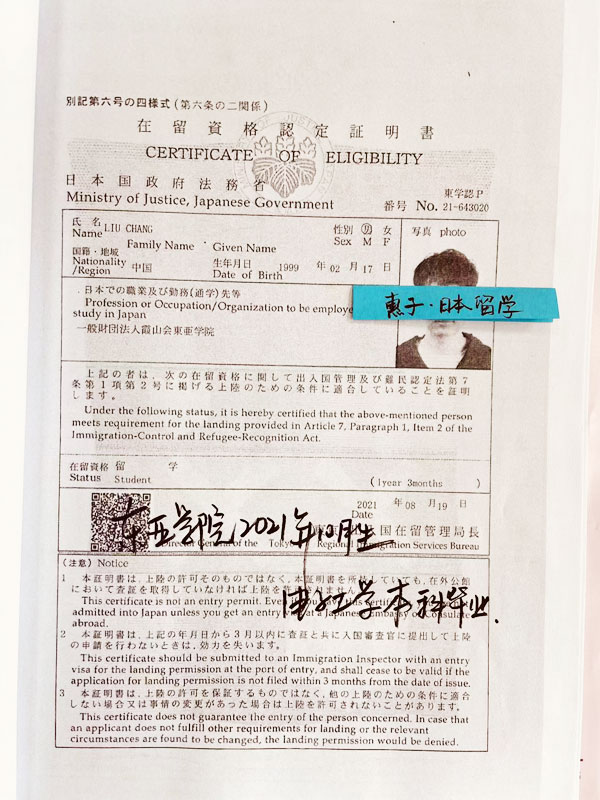 別記第六号の四様式(第六条の二関係)
在留資格認定証明書
CERTIFICATE OF ELIGIBILITY
日本国政府法務省
Ministry of Justice, Japanese Government
東学認P
番号 No. 21-643020
氏名
Name LIU CHANG
Family Name Given Name
性別 男 女
Sex M F
写真 photo
国籍・地域
Nationality
/Region 中国
生年月日 1999 年 02 月 17 日
Date of Birth
惠子·日本留学
日本での職業及び勤務(通学)先等
Profession or Occupation/Organization to be employe
study in Japan
一般財団法人霞山会東亜学院
上記の者は、次の在留資格に関して出入国管理及び難民認定法第7
条第1項第2号に掲げる上陸のための条件に適合していることを証明
します。
Under the following status, it is hereby certified that the above-mentioned person
meets requirement for the landing provided in Article 7, Paragraph 1, Item 2 of the
Immigration-Control and Refugee-Recognition Act.
在留資格 留学
Status Student
(1year 3months )
2021 年 08 月 19 日
Date
东亚学院2021年10月生
国在留管理局長
Director General of the Tokyo Regional Immigration Services Bureau
(注意) Notice
1 本証明書は、上陸の許可そのものではなく、本証明書を所持していても、在外公館
において査証を取得していなければ上陸を許可されません
This certificate is not an entry permit. Even
admitted into Japan unless you get an entry at a Japanese Consulate
abroad.
学本科毕业.
2 本証明書は、上記の年月日から3月以内に査証と共に入国審査官に提出して上陸
の申請を行わないときは、効力を失います。
This certificate should be submitted to an Immigration Inspector with an entry
visa for the landing permission at the port of entry, and shall cease to be valid if the
application for landing permission is not filed within 3 months from the date of issue.
3 本証明書は、上陸の許可を保証するものではなく、他の上陸のための条件に適合
しない場合又は事情の変更があった場合は上陸を許可されないことがあります。
This certificate does not guarantee the entry of the person concerned. In case that
an applicant does not fulfill other requirements for landing or the relevant
circumstances are found to be changed, the landing permission would be denied.